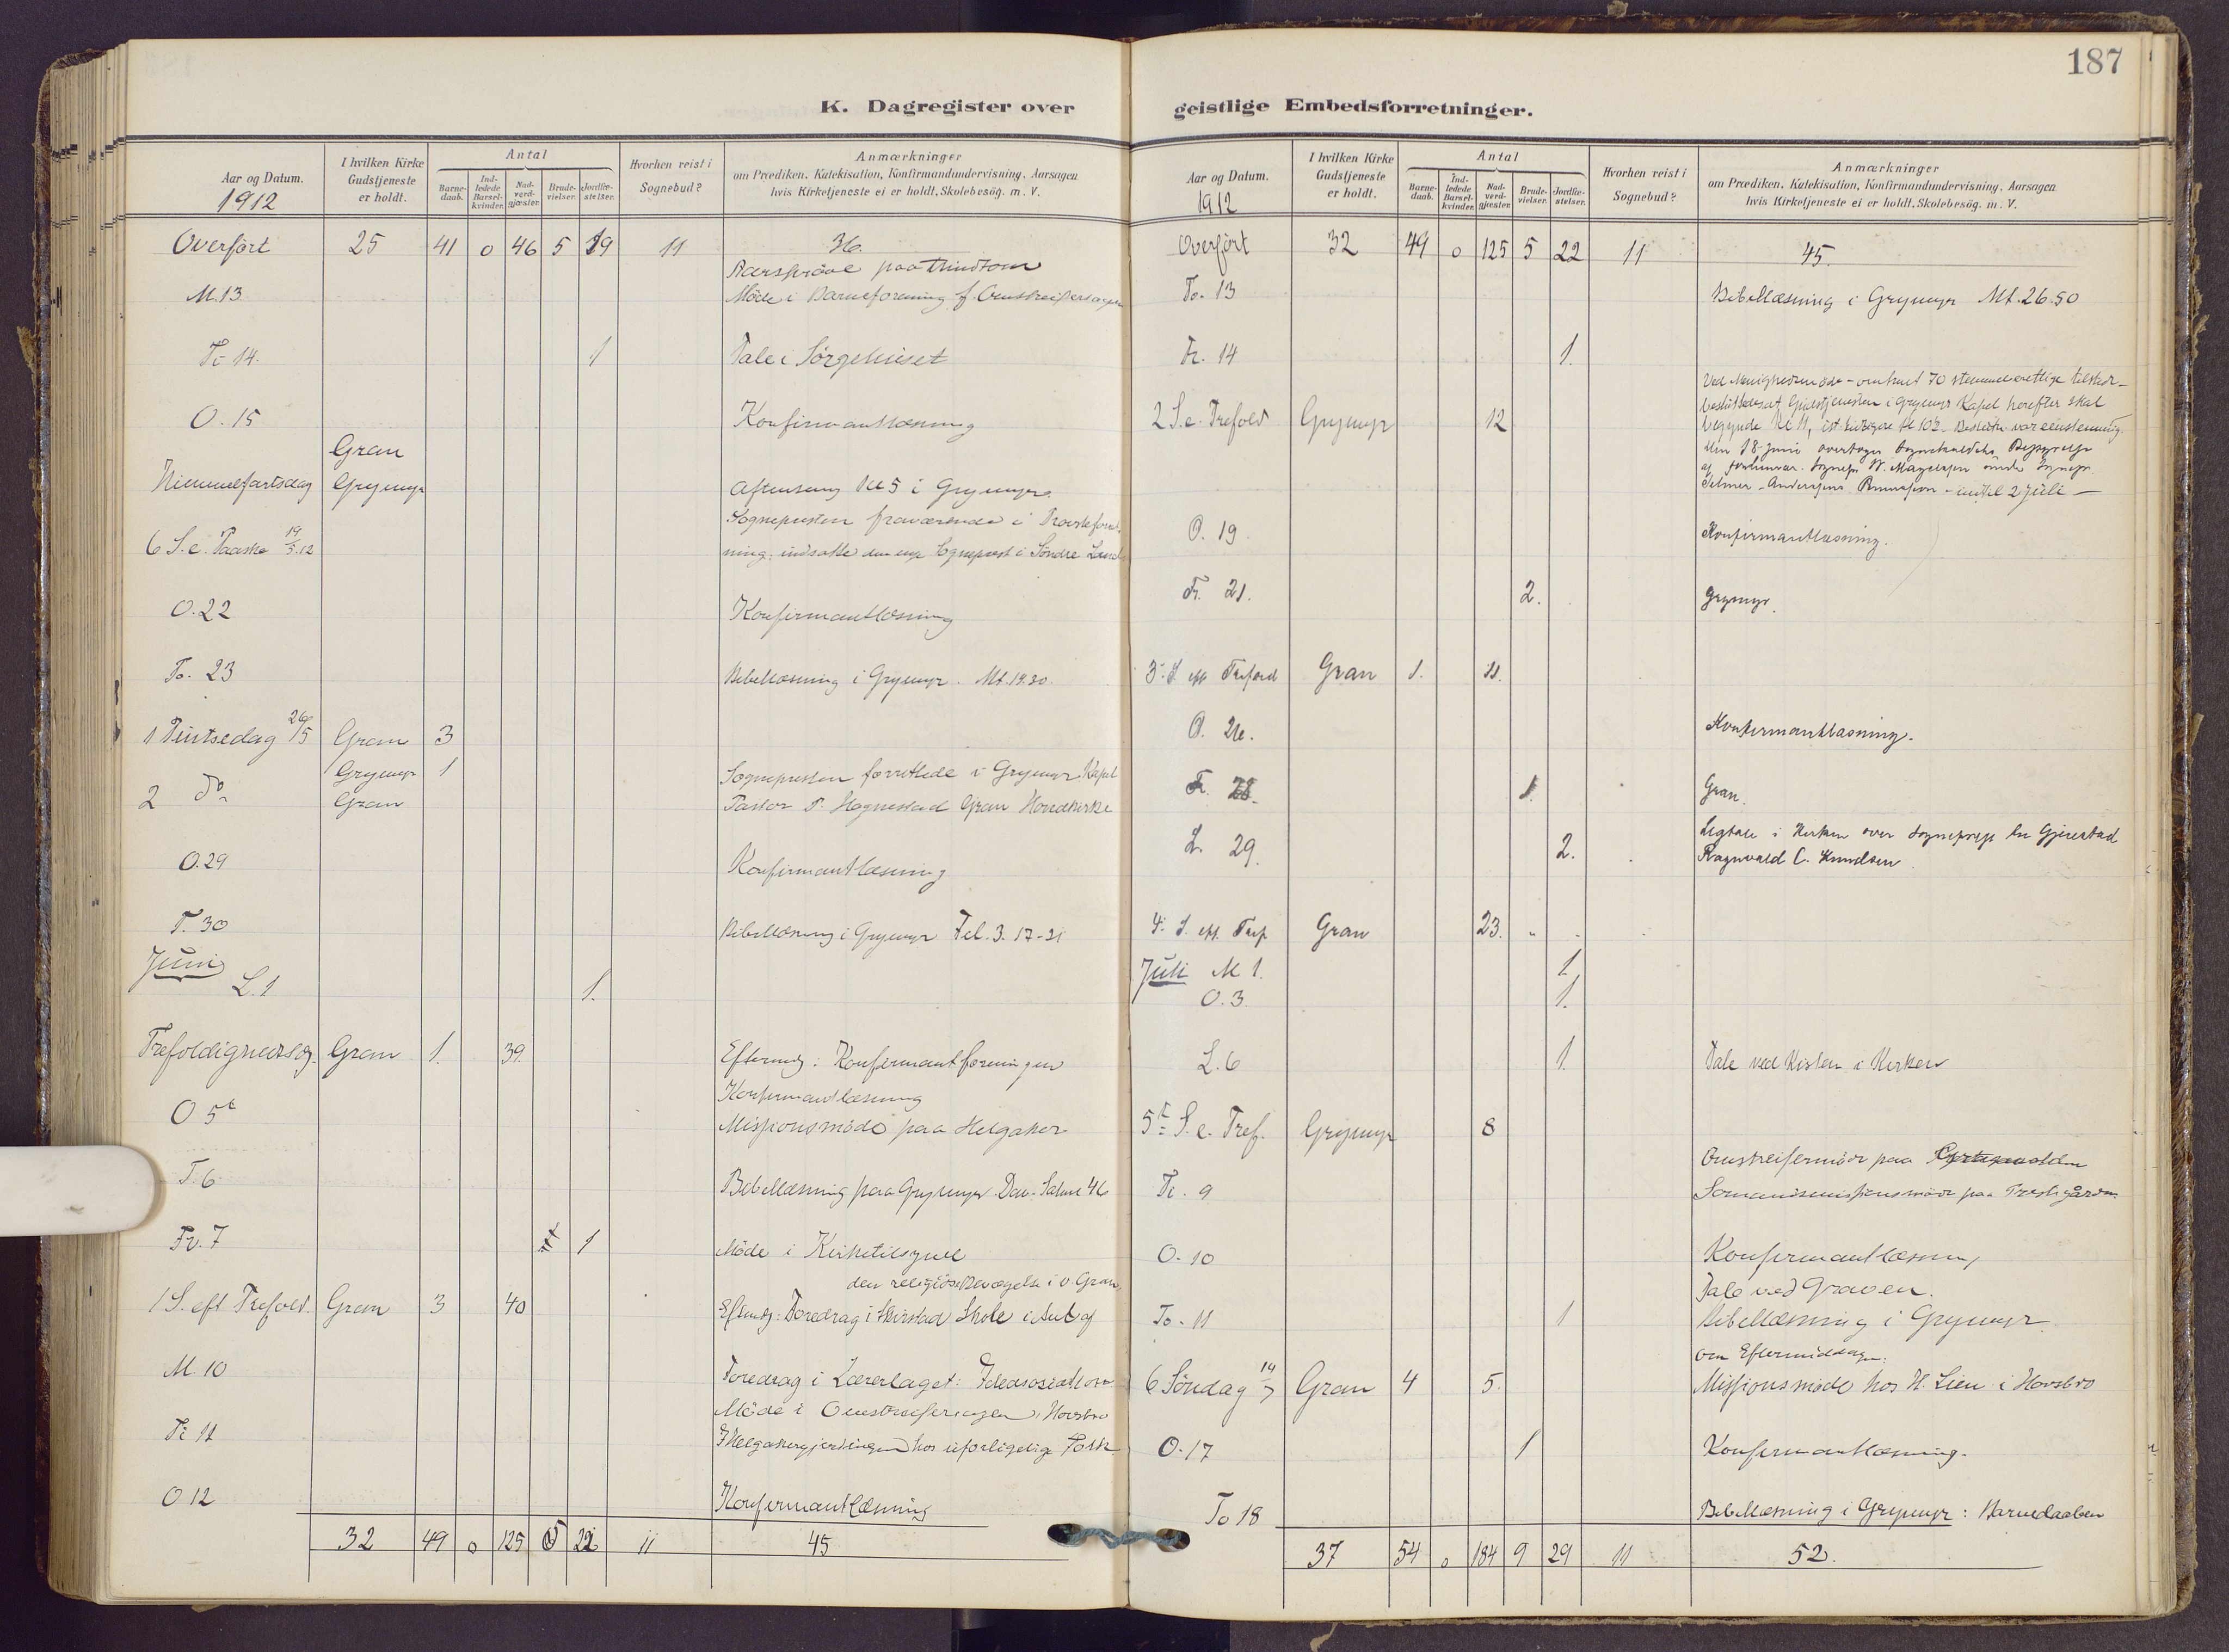 187
K. Dagregister over
Aar og Datum. 1912
I hvilken Kirke Gudstjeneste er holdt.
Antal
Barne-daab.
Ind-ledede Barsel-kvinder.
Nad-verd-gjæster.
Brude-vielser.
Jordfæ-stelser.
Hvorhen reist i Sognebud?
Anmærkninger
om Prædiken, Katekisation, Konfirmandundervisning, Aarsagen
hvis Kirketjeneste ei er holdt. Skolebesög. m. V.
Overført 25 41 0 46 5 19 11 36.
paa
M. 13 Möde i Barneforening f.
Ti 14. 1 Tale i Sörgehuset
O. 15 Konfirmantlæsning
Gran
Himmelfartsdag Grymyr Aftensang Kl 5 i Grymyr.
Sognepresten fraværende i
6 S. e. Paaske 19/5.12 ning: indsatte den nye Sogneprest i Söndre Land
O. 22 Konfirmantlæsning
To. 23 Bibellæsning i Grymyr. Mt. 19.30.
1 Pintsedag 26/5 Gran 3
Grymyr 1 Sognepresten forrettede i Grymyr Kapel
2 do Gran Pastor P. Hognestad Gran Hovedkirke
O. 29 Konfirmantlæsning
T. 30 Bibellæsning i Grymyr 3. 17-21
Juni
L. 1 1.
Trefoldighedsdg. Gran 1. 39. Eftermdg: Konfirmantforeningen
Konfirmantlæsning
O 5t Missionsmöde paa Helgaker
T. 6 Bibellæsning paa Grymyr Dav. Salme 46
Fr. 7 1 Möde i Kirketilsynet
den religiöse Bevægelse i v. Gran
1 S. eft Trefold. Gran 3 40 Eftmdg: Foredrag i Skole i
M. 10 Foredrag i Lærerlaget:
Möde i Hovsbro
Ti 11 hos Folk
O 12 Konfirmantlæsning
32 49 0 125 5 22 11 45
geistlige Embedsforretninger.
Aar og Datum. 1912
I hvilken Kirke Gudstjeneste er holdt.
Antal
Barne-daab.
Ind-ledede Barsel-kvinder.
Nad-verd-gjæster.
Brude-vielser.
Jordfæ-stelser.
Hvorhen reist i Sognebud?
Anmærkninger
om Prædiken, Katekisation, Konfirmandundervisning, Aarsagen
hvis Kirketjeneste ei er holdt. Skolebesög. m. V.
Overført 32 49 0 125 5 22 11 45.
To. 13 Bibellæsning i Grymyr Mt. 26.50
Fr. 14 1.
Ved Menighedsmöde - omtrent 70 stemmeberettige tilstede -
besluttedes at Gudstjenesten i Grymyr Kapel herefter skal
2 S. e. Trefold Grymyr 12 begynde Kl 11, ist. tidligere Kl 10½. var eenstemmig.
den 18 Juni overtoges
af Sognepr.
Selmer - Anderssens - indtil 2 Juli -
O. 19. Konfirmantlæsning.
Fr. 21. 2. Grymyr.
3. S. eft Trefold Gran 1. 11.
O. 26. Konfirmantlæsning.
Fr. 28. 1. Gran.
Ligtale i Kirken over Gjerestad
L. 29. 2. Ragnvald C. Knudsen.
4. S. eft. Tref Gran 23.
Juli M 1. 1.
O. 3. 1.
L. 6 1. Tale ved Kisten i Kirken
5te S. e. Tref. Grymyr 8
Omstreifermöde paa
Ti. 9 paa Prestegården
O. 10 Konfirmantlæsning
Tale ved Graven.
To. 11 1 Bibellæsning i Grymyr
om Eftermiddagen:
6 Söndag 14/7 Gran 4 5. Missionsmöde hos H. Lien i Hovsbro
O. 17 1 Konfirmantlæsning.
To 18 Bibellæsning i Grymyr: Barnedaaben
37 54 0 184 9 29 11 52.